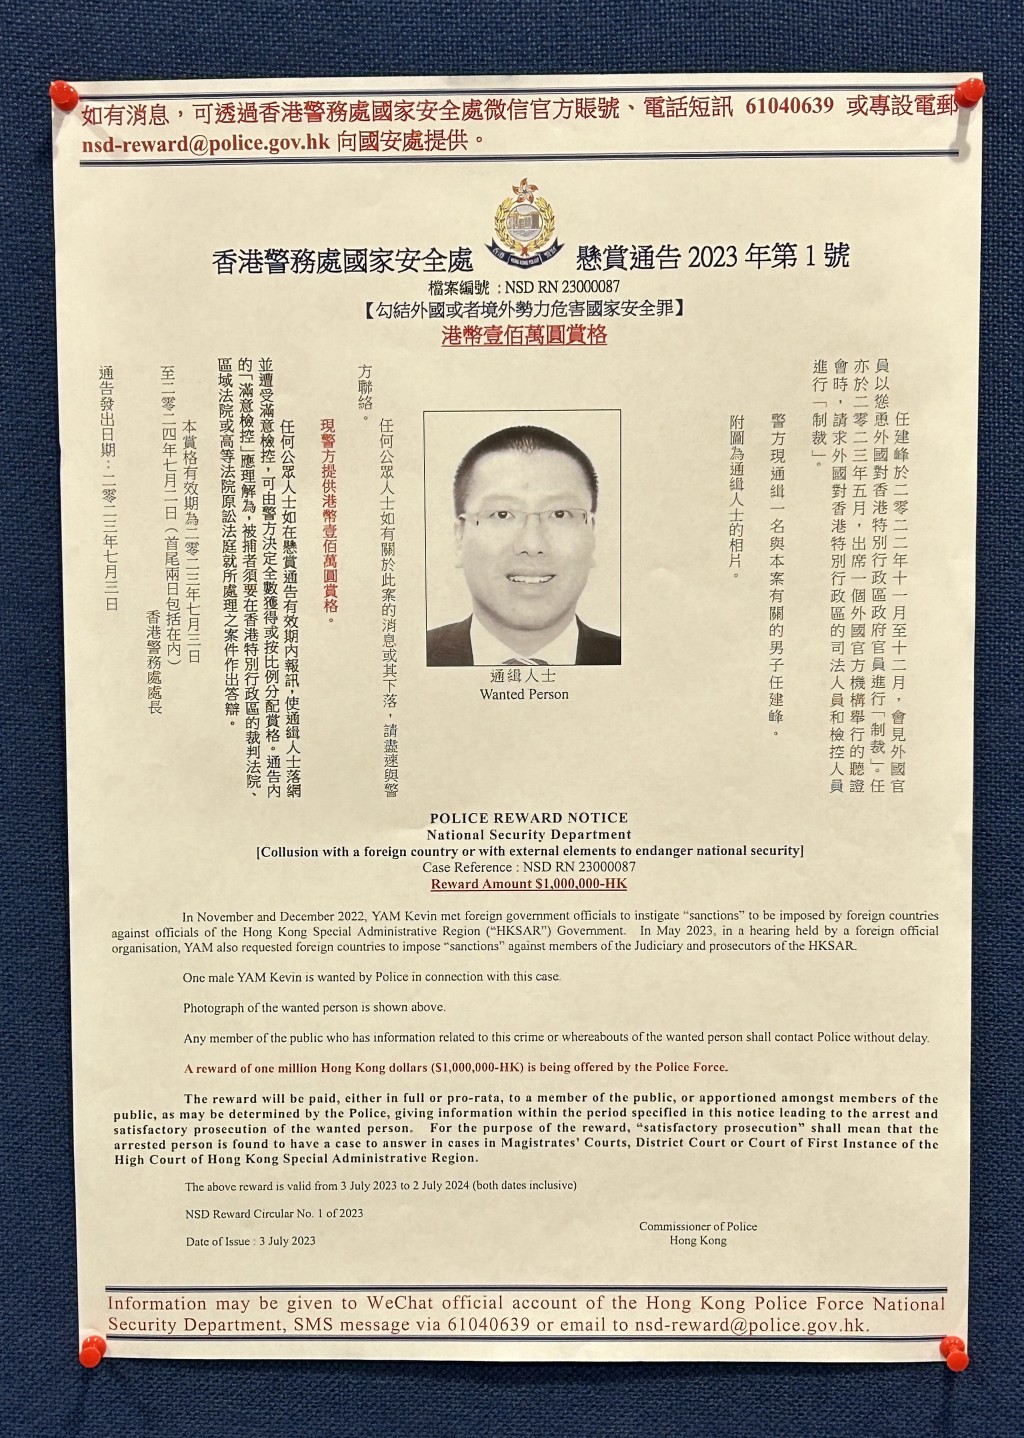 如有消息，可透過香港警務處國家安全處微信官方賬號、電話短訊 61040639 或專設電郵
nsd-reward@police.gov.hk 向國安處提供。
香港警務處國家安全處 懸賞通告 2023 年第 1 號
檔案編號 : NSD RN 23000087
【勾結外國或者境外勢力危害國家安全罪】
港幣壹佰萬圓賞格
任建峰於二零二二年十一月至十二月，會見外國官
員以慫恿外國對香港特別行政區政府官員進行「制裁」。任
亦於二零二三年五月，出席一個外國官方機構舉行的聽證
會時，請求外國對香港特別行政區的司法人員和檢控人員
進行「制裁」。
警方現通緝一名與本案有關的男子任建峰。
附圖為通緝人士的相片。
通緝人士
Wanted Person
任何公眾人士如有關於此案的消息或其下落，請盡速與警
方聯絡。
現警方提供港幣壹佰萬圓賞格。
任何公眾人士如在懸賞通告有效期內報訊，使通緝人士落網
並遭受滿意檢控，可由警方決定全數獲得或按比例分配賞格。通告內
的「滿意檢控」應理解為，被捕者須要在香港特別行政區的裁判法院、
區域法院或高等法院原訟法庭就所處理之案件作出答辯。
本賞格有效期為二零二三年七月三日
至二零二四年七月二日（首尾兩日包括在內）
香港警務處處長
通告發出日期：二零二三年七月三日
POLICE REWARD NOTICE
National Security Department
[Collusion with a foreign country or with external elements to endanger national security]
Case Reference : NSD RN 23000087
Reward Amount $1,000,000-HK
In November and December 2022, YAM Kevin met foreign government officials to instigate “sanctions” to be imposed by foreign countries
against officials of the Hong Kong Special Administrative Region (“HKSAR”) Government. In May 2023, in a hearing held by a foreign official
organisation, YAM also requested foreign countries to impose “sanctions” against members of the Judiciary and prosecutors of the HKSAR.
One male YAM Kevin is wanted by Police in connection with this case.
Photograph of the wanted person is shown above.
Any member of the public who has information related to this crime or whereabouts of the wanted person shall contact Police without delay.
A reward of one million Hong Kong dollars ($1,000,000-HK) is being offered by the Police Force.
The reward will be paid, either in full or pro-rata, to a member of the public, or apportioned amongst members of the
public, as may be determined by the Police, giving information within the period specified in this notice leading to the arrest and
satisfactory prosecution of the wanted person. For the purpose of the reward, “satisfactory prosecution” shall mean that the
arrested person is found to have a case to answer in cases in Magistrates’ Courts, District Court or Court of First Instance of the
High Court of Hong Kong Special Administrative Region.
The above reward is valid from 3 July 2023 to 2 July 2024 (both dates inclusive)
NSD Reward Circular No. 1 of 2023
Commissioner of Police
Date of Issue : 3 July 2023
Hong Kong
Information may be given to WeChat official account of the Hong Kong Police Force National
Security Department, SMS message via 61040639 or email to nsd-reward@police.gov.hk.